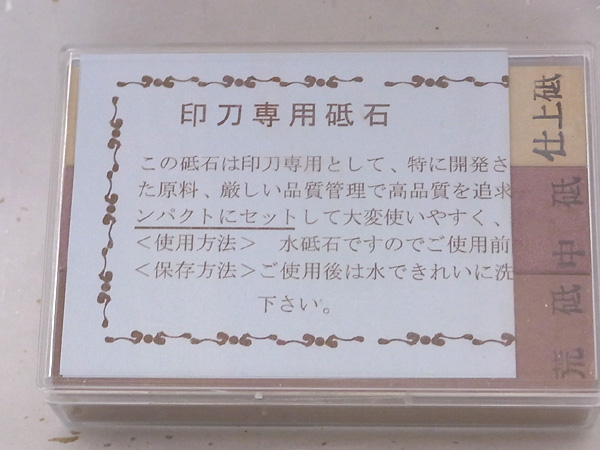 印刀専用砥石
この砥石は印刀専用として、特に開発さ
た原料、厳しい品質管理で高品質を追求
ンパクトにセットして大変使いやすく、
＜使用方法＞　水砥石ですのでご使用前
＜保存方法＞ご使用後は水できれいに洗
下さい。
仕上砥
中砥
荒砥